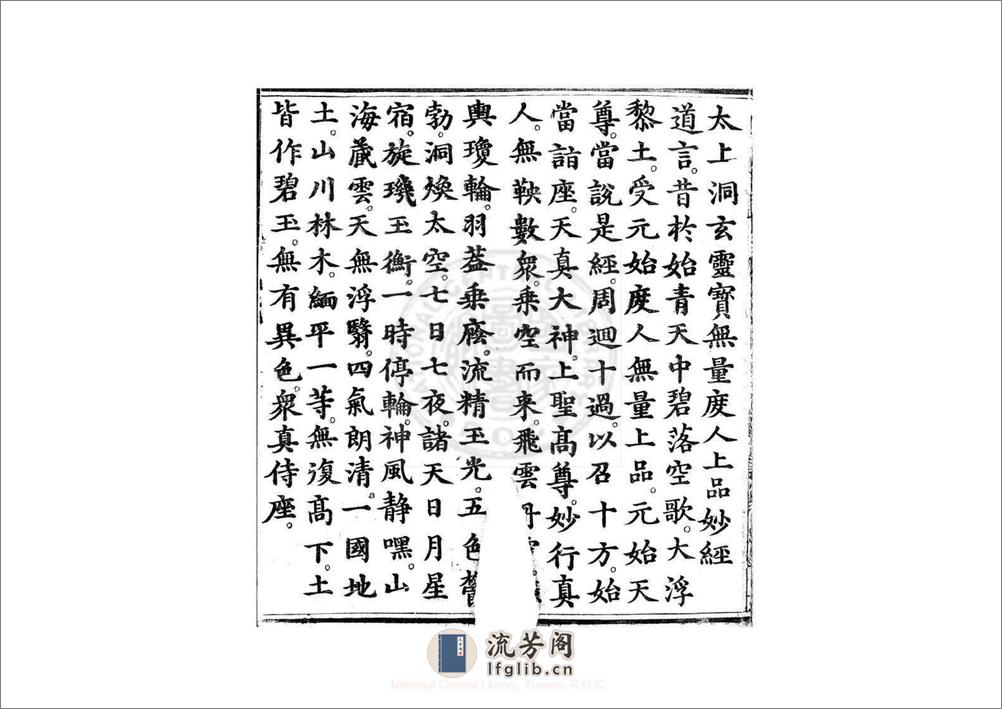 太上洞玄靈寳無量度人上品妙經
道言。昔於始青天中碧落空歌。大浮
黎土。受元始度人無量上品。元始天
尊。當說是經。周迴十過。以召十方。始
當詣座。天真大神。上聖髙尊。妙行真
人。無鞅數衆。乘空而來。飛雲丹
輿瓊輪。羽葢乘廕。流精玉光。五色
勃。洞煥太空。七日七夜。諸天日月星
宿。旋璣玉衡。一時停輪。神風静嘿。山
海蔵雲。天無浮翳。四氣朗清。一國地
土。山川林木。緬平一等。無復髙下。土
皆作碧玉。無有異色。衆真侍座。
流芳阁
lfglib.cn
National Central Library, Taiwan, R.O.C.